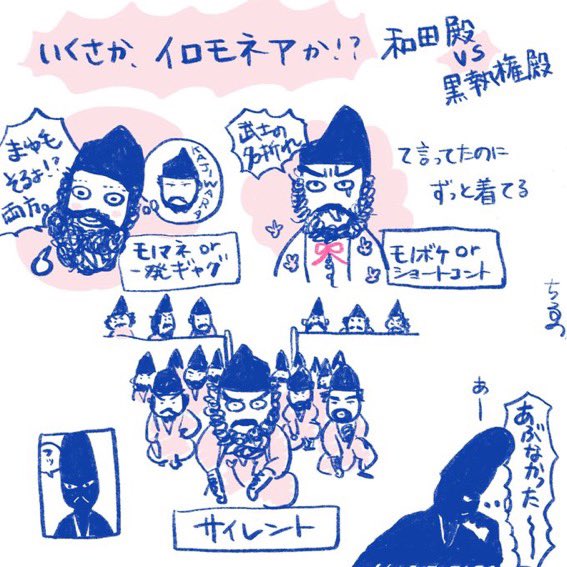 いくさか、イロモネアか!?
和田殿
VS
黒執権殿
まゆ毛
そるよ!?
両方。
KAJIWARA
武士の
名折れ
て言ってたのに
ずっと着てる
モノマネor
一発ギャグ
モノボケor
ショートコント
サイレント
あー
あぶなかった〜